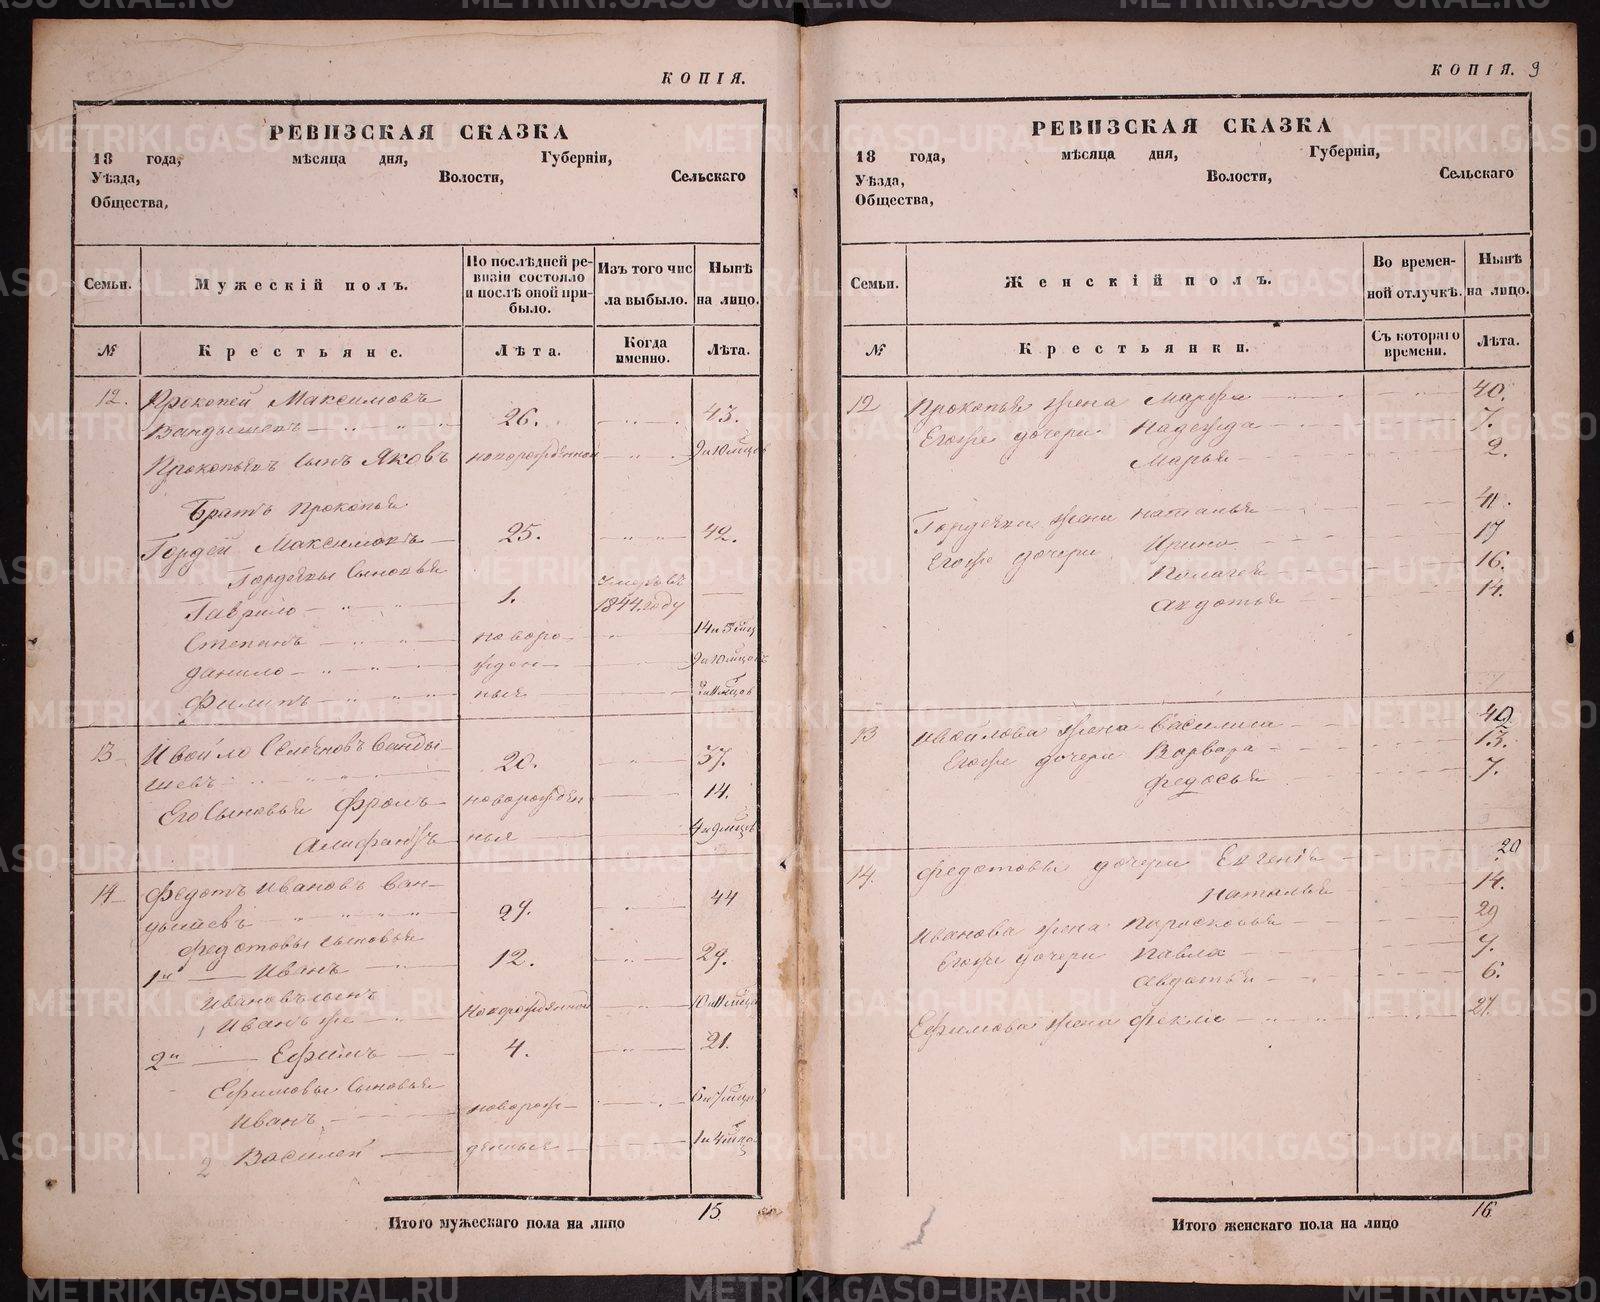 КОПІЯ.
РЕВИЗСКАЯ СКАЗКА
18 года, мѣсяца дня, Губерніи,
Уѣзда, Волости, Сельскаго
Общества,
Семьи. Мужескій полъ. По послѣдней ревизіи состояло и послѣ оной прибыло. Изъ того числа выбыло. Нынѣ на лицо.
№ Крестьяне. Лѣта. Когда именно. Лѣта.
12. Прокопей Максимовъ
Вандышевъ 26. 43.
Прокопьевъ сынъ Яковъ новорожденной 9 и 10 мѣцовъ
Братъ Прокопья
Гордей Максимовъ 25. 42.
Гордеевы сыновья
Гаврило 1. умеръ въ 1844 году
Степанъ новоро 14 и 5 мѣц
Данило жден 9 и 10 мѣцовъ
Филипъ ныя
13 Ивойло Семеновъ Ванды-
шевъ 20. 37.
Его сыновья Фролъ новорожден 14.
Алифанъ ныя 4 и 9 мѣцовъ
14 Федотъ Ивановъ Ван-
дышевъ 27. 44
Федотовы сыновья
1й Иванъ 12. 29.
Ивановъ сынъ
Иванъ же новорожденной 10 и 11 мѣцов
2й Ефимъ 4. 21.
Ефимовы сыновья
Иванъ новорож- 6 и 7 мѣцов
2 Василей денные 1 и 4 мѣцов
Итого мужескаго пола на лицо 15
КОПІЯ. 9
РЕВИЗСКАЯ СКАЗКА
18 года, мѣсяца дня, Губерніи,
Уѣзда, Волости, Сельскаго
Общества,
Семьи. Женскій полъ. Во временной отлучкѣ. Нынѣ на лицо.
№ Крестьянки. Съ котораго времени. Лѣта.
12 Прокопья жена Марфа 40.
Егоже дочери Надежда 7.
Марья 2.
Гордеева жена Наталья 41.
Егоже дочери Ирина 17
Палагея 16.
Авдотья 14.
13 Ивойлова жена Василиса 40
Егоже дочери Варвара 13.
Федосья 7.
14. Федотовы дочери Евгенія 20
Наталья 14.
Иванова жена Парасковья 29
Егоже дочери Павла 9.
Авдотья 6.
Ефимова жена Фекла 21.
Итого женскаго пола на лицо 16
METRIKI.GASO-URAL.RU